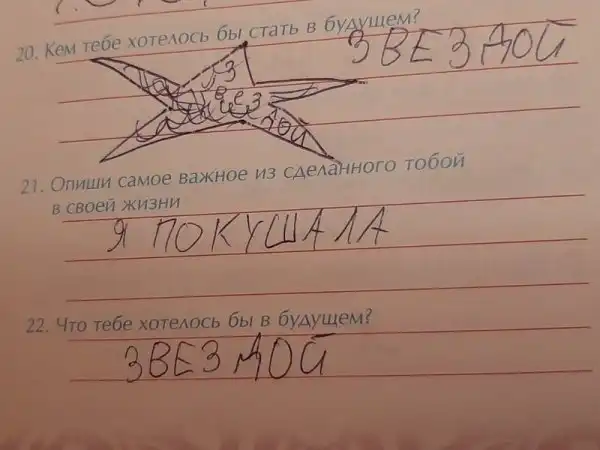 20. Кем тебе хотелось бы стать в будущем?
ЗВЕЗДОЙ
звездой
21. Опиши самое важное из сделанного тобой
в своей жизни
Я ПОКУШАЛА
22. Что тебе хотелось бы в будущем?
ЗВЕЗДОЙ